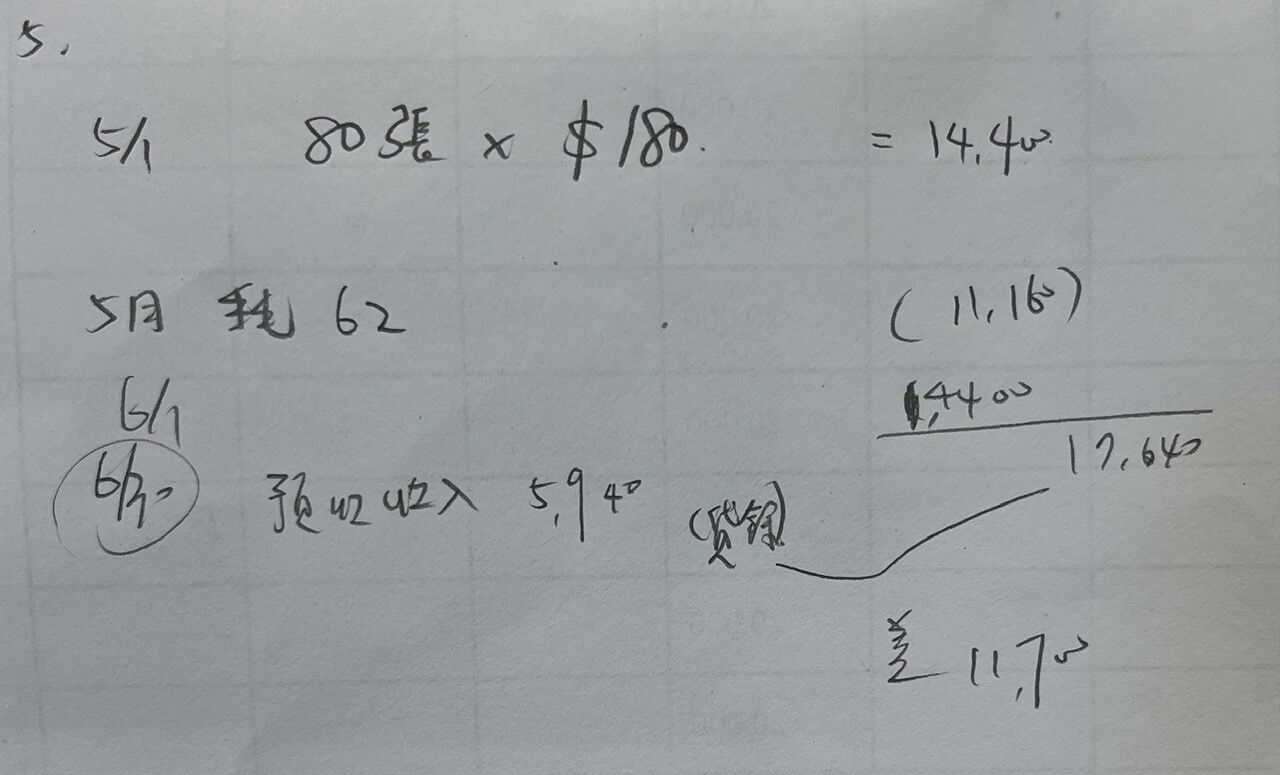 5.
5/1 80張 × $180. = 14,400
5月 耗 62 (11,160)
6/1 14,400
17,640
6/30 預收收入 5,940 (貸餘)
差 11,700